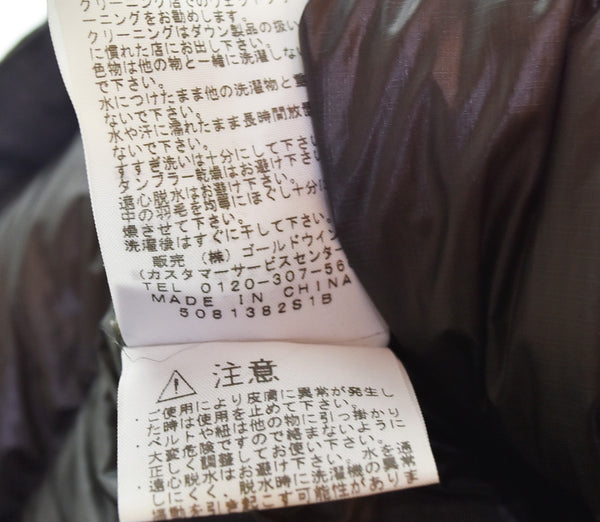 クリーニング店でのウェットクリ
ーニングをお勧めします。
クリーニングはダウン製品の扱い
に慣れた店にお出し下さい。
色物は他の物と一緒に洗濯しない
で下さい。
水につけたまま他の洗濯物と重
ないで下さい。
水や汗に濡れたまま長時間放置
ないで下さい。
すすぎ洗いは十分にして下さい
タンブラー乾燥はお避け下さい
遠心脱水はお避け下さい。
中の羽毛を均等にほぐし十分に
燥させて下さい。
洗濯後はすぐに干して下さい。
販売 (株) ゴールドウイン
(カスタマーサービスセンター
TEL 0120-307-56
MADE IN CHINA
5081382S1B
注意
・ご使用により皮膚に異常が発生し
た時は使用を止めて下さい。
・ベルトや紐は他の物に引っ掛かり
大変危険ですので絡まないように
正しく調整してお使い下さい。
・遠心脱水はお避け下さい。水を通
しにくく、脱水時に洗濯機の異常
振動を引き起こす可能性がありま